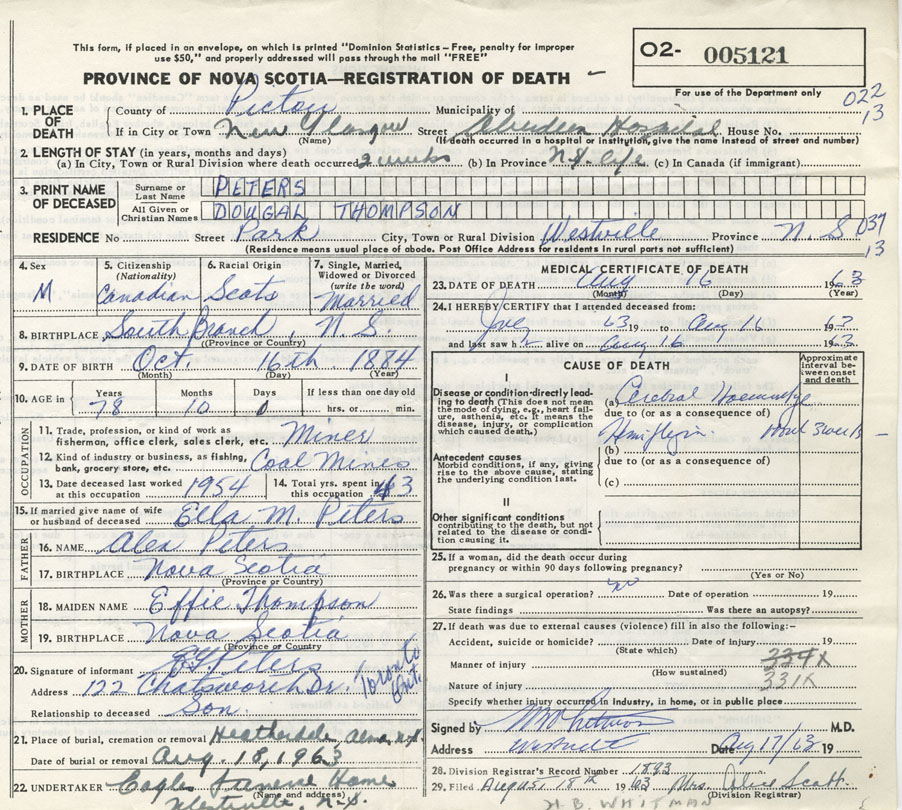 This form, if placed in an envelope, on which is printed "Dominion Statistics – Free, penalty for improper
use $50," and properly addressed will pass through the mail "FREE"
PROVINCE OF NOVA SCOTIA—REGISTRATION OF DEATH
O2- 005121
For use of the Department only
022
13
1. PLACE OF DEATH
County of Pictou Municipality of
If in City or Town New Glasgow Street Aberdeen Hospital House No.
(Name) (If death occurred in a hospital or institution, give the name instead of street and number)
2. LENGTH OF STAY (in years, months and days)
(a) In City, Town or Rural Division where death occurred 3 weeks (b) In Province N.S. Life (c) In Canada (if immigrant)
3. PRINT NAME OF DECEASED
Surname or Last Name PETERS
All Given or Christian Names DOUGAL THOMPSON
RESIDENCE No Street Park City, Town or Rural Division Westville Province N. S
037
13
(Residence means usual place of abode. Post Office Address for residents in rural parts not sufficient)
4. Sex M
5. Citizenship (Nationality) Canadian
6. Racial Origin Scots
7. Single, Married, Widowed or Divorced (write the word) Married
8. BIRTHPLACE South Branch, N. S.
(Province or Country)
9. DATE OF BIRTH Oct. 16th 1884
(Month) (Day) (Year)
10. AGE in Years 78 Months 10 Days 0 If less than one day old hrs. or min.
OCCUPATION
11. Trade, profession, or kind of work as fisherman, office clerk, sales clerk, etc. Miner
12. Kind of industry or business, as fishing, bank, grocery store, etc. Coal Mines
13. Date deceased last worked at this occupation 1954
14. Total yrs. spent in this occupation 43
15. If married give name of wife or husband of deceased Ella M. Peters
FATHER
16. NAME Alex Peters
17. BIRTHPLACE Nova Scotia
(Province or Country)
MOTHER
18. MAIDEN NAME Effie Thompson
19. BIRTHPLACE Nova Scotia
(Province or Country
20. Signature of informant Peters
Address 122 Chatsworth Dr. Toronto Ont.
Relationship to deceased Son.
21. Place of burial, cremation or removal Heatherdale Alma, N.S.
Date of burial or removal Aug. 18, 1963
22. UNDERTAKER Eagles Funeral Home
(Name and address)
Westville, N.S.
MEDICAL CERTIFICATE OF DEATH
23. DATE OF DEATH Aug 16 1963
(Month) (Day) (Year)
24. I HEREBY CERTIFY that I attended deceased from:
July 63 19 to Aug 16 1963
and last saw h alive on Aug 16 1963
CAUSE OF DEATH
Approximate interval between onset and death
I
Disease or condition directly leading to death (This does not mean the mode of dying, e.g., heart failure, asthenia, etc. It means the disease, injury, or complication which caused death.)
(a) Cerebral Hoemorrhage
due to (or as a consequence of)
Hemiplegia. About 3 weeks
Antecedent causes
Morbid conditions, if any, giving rise to the above cause, stating the underlying condition last.
(b)
due to (or as a consequence of)
(c)
II
Other significant conditions
contributing to the death, but not related to the disease or condition causing it.
25. If a woman, did the death occur during pregnancy or within 90 days following pregnancy?
(Yes or No)
26. Was there a surgical operation? no Date of operation 19
State findings Was there an autopsy?
27. If death was due to external causes (violence) fill in also the following:-
Accident, suicide or homicide? Date of Injury 19
(State which)
Manner of injury 334X
(How sustained)
Nature of injury 331X
Specify whether injury occurred in industry, in home, or in public place
Signed by M.D.
Address Westville Date Aug 17/63 19
28. Division Registrar's Record Number 1893
29. Filed August 18th 1963 Mrs. Alice Scott
(Division Registrar)
H. B. WHITMAN